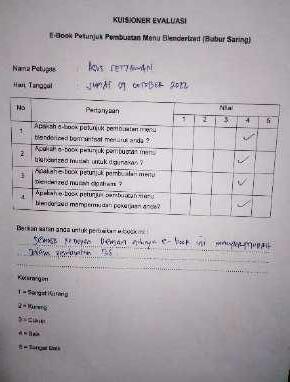 KUISIONER EVALUASI
E-Book Petunjuk Pembuatan Menu Blenderized (Bubur Saring)
Nama Petugas : AGUS SETIAWAN
Hari, Tanggal : JUMAT 09 OKTOBER 2022
No Pertanyaan Nilai
1 2 3 4 5
1 Apakah e-book petunjuk pembuatan menu
blenderized bermanfaat menurut anda ?
2 Apakah e-book petunjuk pembuatan menu
blenderized mudah untuk digunakan ?
3 Apakah e-book petunjuk pembuatan menu
blenderized mudah dipahami ?
4 Apakah e-book petunjuk pembuatan menu
blenderized mempermudah pekerjaan anda?
Berikan saran anda untuk perbaikan e-book ini :
Dengan adanya e-book ini
Dalam pembuatan
Keterangan
1 = Sangat Kurang
2 = Kurang
3 = Cukup
4 = Baik
5 = Sangat Baik